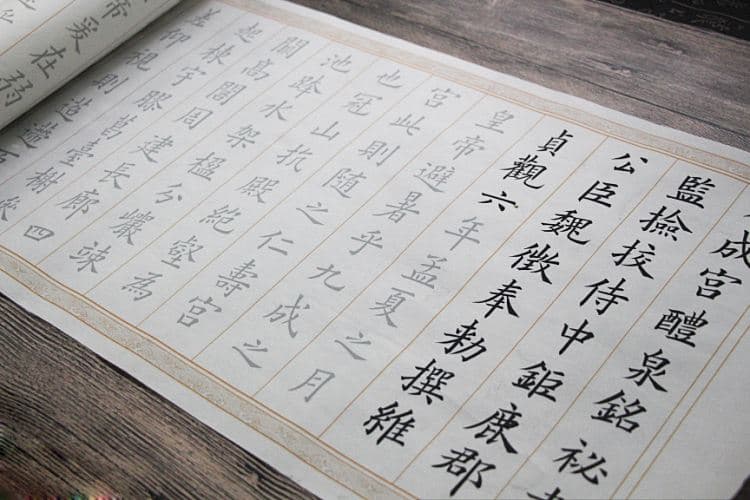 成宮醴泉銘祕
監檢挍侍中鉅鹿郡
公臣魏徵奉勑撰維
貞觀六年孟夏之月
皇帝避暑乎九成之
宮此則随之仁壽宮
也冠山抗殿絶壑為
池跨水架楹分巖竦
闕髙閣周建長廊四
起棟宇膠葛臺榭參
差仰視則迢遰百
帝爰在弱